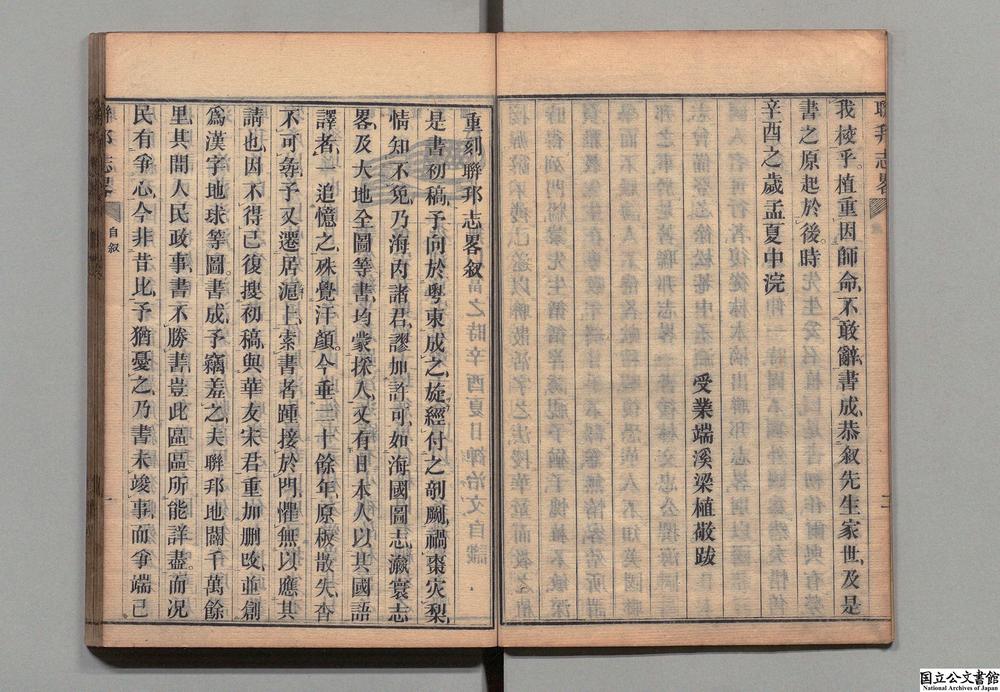 聯邦志畧
我校乎。植重因師命、不敢辭、書成、恭叙先生家世、及是
書之原起於後。時
辛酉之歲孟夏中浣
受業端溪梁植敬跋
二
重刻聯邦志畧叙
是書初稿、予向於粵東成之、旋經付之剞劂、禍棗灾梨、
情知不免、乃海内諸君、謬加許可、如海國圖志、瀛寰志
畧、及大地全圖等書、均蒙採入、又有日本人以其國語
譯者、一追憶之、殊覺汗顔。今垂二十餘年、原板散失、杳
不可尋、予又遷居滬上、索書者踵接於門、懼無以應其
請也、因不得已、復搜初稿、與華友宋君重加刪改、並創
爲漢字地球等圖。書成、予竊羞之、夫聯邦地闊千萬餘
里、其間人民政事、書不勝書、豈此區區所能詳盡。而况
民有爭心、今非昔比、予猶憂之、乃書未竣事、而爭端已
聯邦志畧
自叙
一
国立公文書館
National Archives of Japan